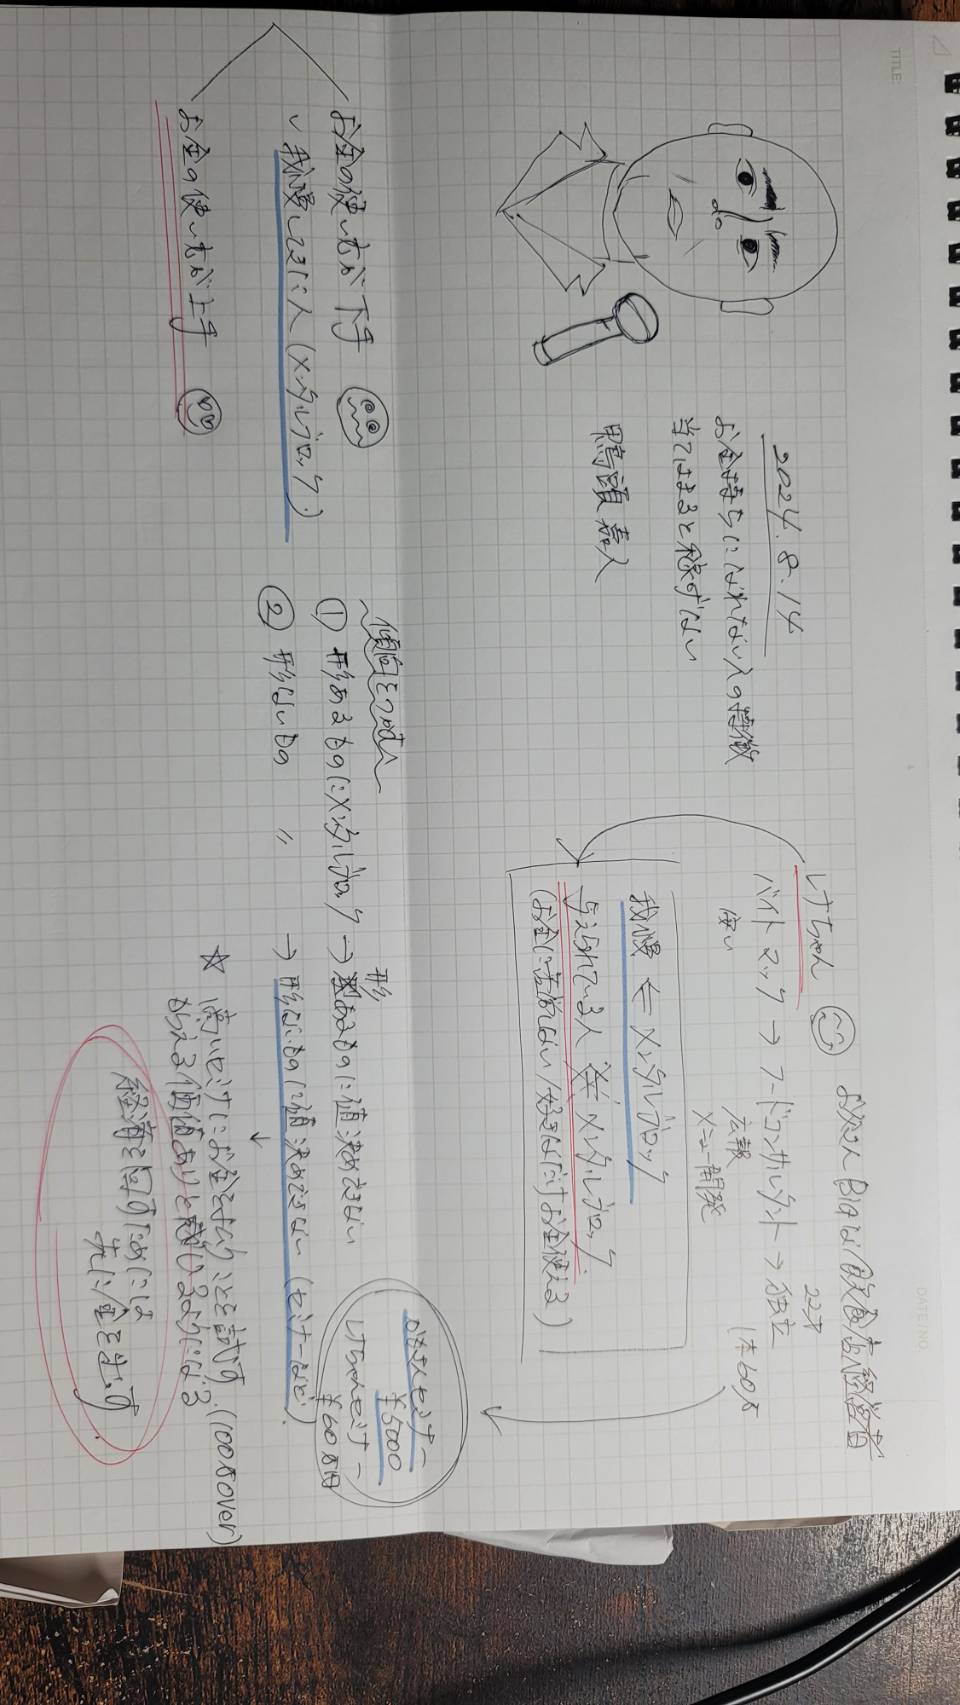 TITLE:
DATE/NO.
2024.8.14
お金持ちになれない人の特徴
当てはまると稼げない
鴨頭嘉人
お父さん Bigな飲食店経営者
しげちゃん
バイト マック → フードコンサルタント → 独立
安い
広報
メニュー開発
22才
1本60万
我慢 ⇐ メンタルブロック
与えられている人 ≠ メンタルブロック
(お金に直結しない/好きなだけお金使える)
お金の使い方が下手
✓ 我慢してきた人 (メンタルブロック)
お金の使い方が上手
傾向をつかむ
① 形あるものにメンタルブロック → 形あるものに値決めできない
② 形ないもの 〃 → 形ないものに値決めできない (セミナーなど)
お父さんセミナー
¥5000
しげちゃんセミナー
¥60万円
☆ 高いセミナーにお金を払うことを試す。(100万over)
↓
もらえる価値ありと思い込むようになる
経済を回すためには
先に金を出す